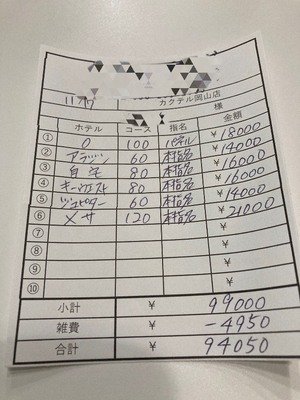 カクテル岡山店
様
ホテル コース 指名 金額
① O 100 パネル ¥18000
② アラジン 60 本指名 ¥14000
③ 自宅 80 本指名 ¥16000
④ 80 本指名 ¥16000
⑤ ジュピター 60 本指名 ¥14000
⑥ メサ 120 本指名 ¥21000
⑦
⑧
⑨
⑩
小計 ¥ 99000
雑費 ¥ -4950
合計 ¥ 94050